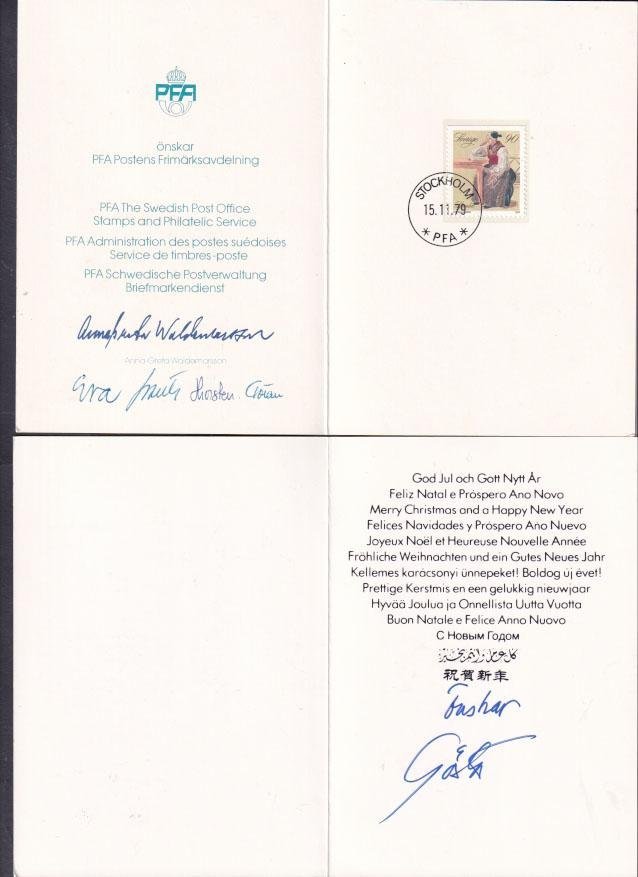 PFA
önskar
PFA Postens Frimärksavdelning
PFA The Swedish Post Office
Stamps and Philatelic Service
PFA Administration des postes suédoises
Service de timbres-poste
PFA Schwedische Postverwaltung
Briefmarkendienst
Anna Greta Waldemarsson
Eva
Thorsten
Göran
Sverige 90
STOCKHOLM
15.11.79
* PFA *
God Jul och Gott Nytt År
Feliz Natal e Próspero Ano Novo
Merry Christmas and a Happy New Year
Felices Navidades y Próspero Ano Nuevo
Joyeux Noël et Heureuse Nouvelle Année
Fröhliche Weihnachten und ein Gutes Neues Jahr
Kellemes karácsonyi ünnepeket! Boldog új évet!
Prettige Kerstmis en een gelukkig nieuwjaar
Hyvää Joulua ja Onnellista Uutta Vuotta
Buon Natale e Felice Anno Nuovo
С Новым Годом
كل عام وانتم بخير
祝賀新年
önskar
Gösta